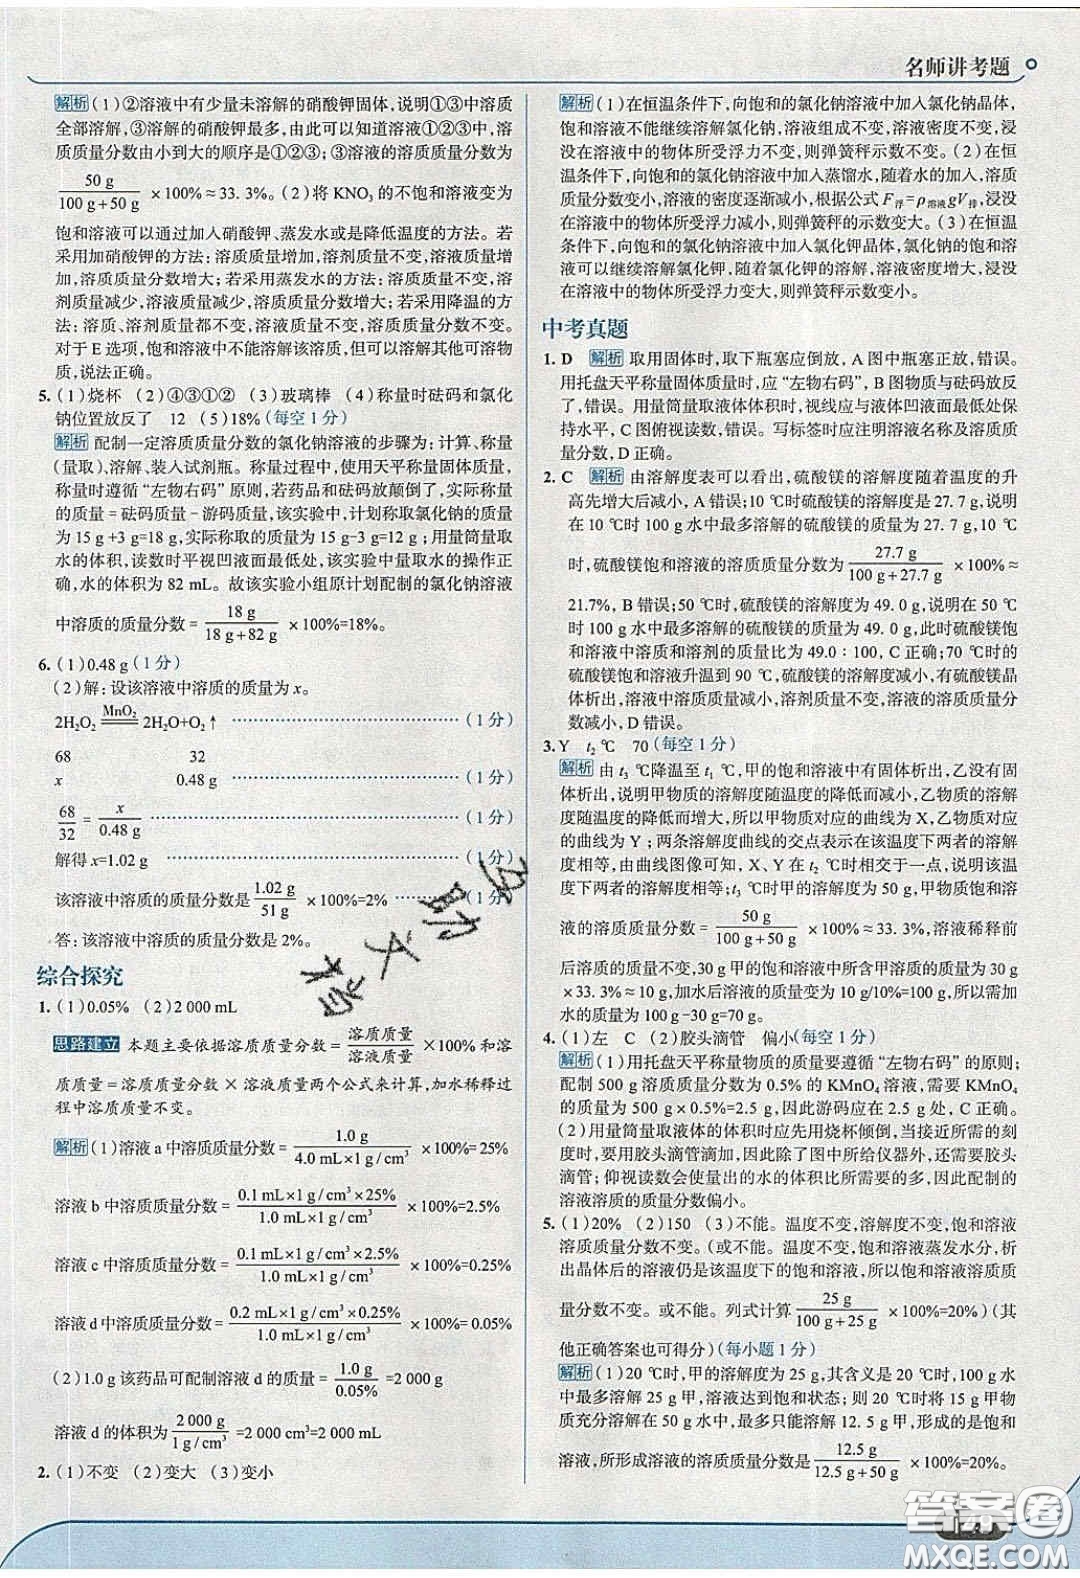 名师讲考题
解析(1)②溶液中有少量未溶解的硝酸钾固体,说明①③中溶质
全部溶解,③溶解的硝酸钾最多,由此可以知道溶液①②③中,溶
质质量分数由小到大的顺序是①②③;③溶液的溶质质量分数为
50 g/(100 g+50 g) ×100%≈33.3%。(2)将 KNO₃ 的不饱和溶液变为
饱和溶液可以通过加入硝酸钾、蒸发水或是降低温度的方法。若
采用加硝酸钾的方法:溶质质量增加,溶剂质量不变,溶液质量增
加,溶质质量分数增大;若采用蒸发水的方法:溶质质量不变,溶
剂质量减少,溶液质量减少,溶质质量分数增大;若采用降温的方
法:溶质、溶剂质量都不变,溶液质量不变,溶质质量分数不变。
对于 E 选项,饱和溶液中不能溶解该溶质,但可以溶解其他可溶物
质,说法正确。
5. (1)烧杯 (2)④③①② (3)玻璃棒 (4)称量时砝码和氯化
钠位置放反了 12 (5)18%(每空 1 分)
解析 配制一定溶质质量分数的氯化钠溶液的步骤为:计算、称量
(量取)、溶解、装入试剂瓶。称量过程中,使用天平称量固体质量,
称量时遵循“左物右码”原则,若药品和砝码放颠倒了,实际称量
的质量=砝码质量-游码质量,该实验中,计划称取氯化钠的质量
为 15 g +3 g=18 g,实际称取的质量为 15 g-3 g=12 g;用量筒量取
水的体积,读数时平视凹液面最低处,该实验中量取水的操作正
确,水的体积为 82 mL。故该实验小组原计划配制的氯化钠溶液
中溶质的质量分数= 18 g/(18 g+82 g) ×100%=18%。
6. (1)0.48 g(1 分)
(2)解:设该溶液中溶质的质量为 x。
2H₂O₂ =MnO₂= 2H₂O+O₂↑ (1 分)
68 32
x 0.48 g (1 分)
68/32 = x/0.48 g (1 分)
解得 x=1.02 g (1 分)
该溶液中溶质的质量分数是 1.02 g/51 g ×100%=2% (1 分)
答:该溶液中溶质的质量分数是 2%。
综合探究
1. (1)0.05% (2)2 000 mL
思路建立 本题主要依据溶质质量分数= 溶质质量/溶液质量 ×100% 和溶
质质量=溶质质量分数×溶液质量两个公式来计算,加水稀释过
程中溶质质量不变。
解析(1)溶液 a 中溶质质量分数= 1.0 g/(4.0 mL×1 g/cm³) ×100%=25%
溶液 b 中溶质质量分数= (0.1 mL×1 g/cm³×25%)/(1.0 mL×1 g/cm³) ×100%=2.5%
溶液 c 中溶质质量分数= (0.1 mL×1 g/cm³×2.5%)/(1.0 mL×1 g/cm³) ×100%=0.25%
溶液 d 中溶质质量分数= (0.2 mL×1 g/cm³×0.25%)/(1.0 mL×1 g/cm³) ×100%=0.05%
(2)1.0 g 该药品可配制溶液 d 的质量= 1.0 g/0.05% =2 000 g
溶液 d 的体积为 2 000 g/(1 g/cm³) =2 000 cm³=2 000 mL
2. (1)不变 (2)变大 (3)变小
解析(1)在恒温条件下,向饱和的氯化钠溶液中加入氯化钠晶体,
饱和溶液不能继续溶解氯化钠,溶液组成不变,溶液密度不变,浸
没在溶液中的物体所受浮力不变,则弹簧秤示数不变。(2)在恒
温条件下,向饱和的氯化钠溶液中加入蒸馏水,随着水的加入,溶质
质量分数变小,溶液的密度逐渐减小,根据公式 F浮=ρ溶液gV排,浸没
在溶液中的物体所受浮力减小,则弹簧秤的示数变大。(3)在恒温
条件下,向饱和的氯化钠溶液中加入氯化钾晶体,氯化钠的饱和溶
液可以继续溶解氯化钾,随着氯化钾的溶解,溶液密度增大,浸没
在溶液中的物体所受浮力变大,则弹簧秤示数变小。
中考真题
1. D 解析 取用固体时,取下瓶塞应倒放,A 图中瓶塞正放,错误。
用托盘天平称量固体质量时,应“左物右码”,B 图物质与砝码放反
了,错误。用量筒量取液体体积时,视线应与液体凹液面最低处保
持水平,C 图俯视读数,错误。写标签时应注明溶液名称及溶质质
量分数,D 正确。
2. C 解析 由溶解度表可以看出,硫酸镁的溶解度随着温度的升
高先增大后减小,A 错误;10 ℃时硫酸镁的溶解度是 27.7 g,说明
在 10 ℃时 100 g 水中最多溶解的硫酸镁的质量为 27.7 g,10 ℃
时,硫酸镁饱和溶液的溶质质量分数为 27.7 g/(100 g+27.7 g) ×100%≈
21.7%,B 错误;50 ℃时,硫酸镁的溶解度为 49.0 g,说明在 50 ℃
时 100 g 水中最多溶解的硫酸镁的质量为 49.0 g,此时硫酸镁饱
和溶液中溶质和溶剂的质量比为 49.0∶100,C 正确;70 ℃时的
硫酸镁饱和溶液升温到 90 ℃,硫酸镁的溶解度减小,有硫酸镁晶
体析出,溶液中溶质质量减小,溶剂质量不变,溶液的溶质质量分
数减小,D 错误。
3. Y t₂ ℃ 70(每空 1 分)
解析 由 t₃ ℃降温至 t₁ ℃,甲的饱和溶液中有固体析出,乙没有固
体析出,说明甲物质的溶解度随温度的降低而减小,乙物质的溶解
度随温度的降低而增大,所以甲物质对应的曲线为 X,乙物质对应
的曲线为 Y;两条溶解度曲线的交点表示在该温度下两者的溶解
度相等,由曲线图像可知,X、Y 在 t₂ ℃时相交于一点,说明该温
度下两者的溶解度相等;t₃ ℃时甲的溶解度为 50 g,甲物质饱和溶
液的溶质质量分数= 50 g/(100 g+50 g) ×100%≈33.3%,溶液稀释前
后溶质的质量不变,30 g 甲的饱和溶液中所含甲溶质的质量为 30 g
×33.3%=10 g,加水后溶液的质量变为 10 g/10%=100 g,所以需加
水的质量为 100 g-30 g=70 g。
4. (1)左 C (2)胶头滴管 偏小(每空 1 分)
解析(1)用托盘天平称量物质的质量要遵循“左物右码”的原则;
配制 500 g 溶质质量分数为 0.5%的 KMnO₄ 溶液,需要 KMnO₄
的质量为 500 g×0.5%=2.5 g,因此游码应在 2.5 g 处,C 正确。
(2)用量筒量取液体的体积时应先用烧杯倾倒,当接近所需的刻
度时,要用胶头滴管滴加,因此除了图中所给仪器外,还要有胶头
滴管;仰视读数会使量出的水的体积比所需的多,因此配制的
溶液溶质的质量分数偏小。
5. (1)20% (2)150 (3)不能。温度不变,溶解度不变,饱和溶液
溶质质量分数不变。(或不能。温度不变,饱和溶液蒸发水分,析
出晶体后的溶液仍是该温度下的饱和溶液,所以饱和溶液溶质质
量分数不变。或不能。列式计算 25 g/(100 g+25 g) ×100%=20%)(其
他正确答案也可得分)(每小题 1 分)
解析(1)20 ℃时,甲的溶解度为 25 g,其含义是 20 ℃时,100 g 水
中最多溶解 25 g 甲,溶液达到饱和状态;则 20 ℃时将 15 g 甲物
质充分溶解在 50 g 水中,最多只能溶解 12.5 g 甲,形成的是饱和
溶液,所形成溶液的溶质质量分数是 12.5 g/(12.5 g+50 g) ×100%=20%。
答案圈
MXQE.COM